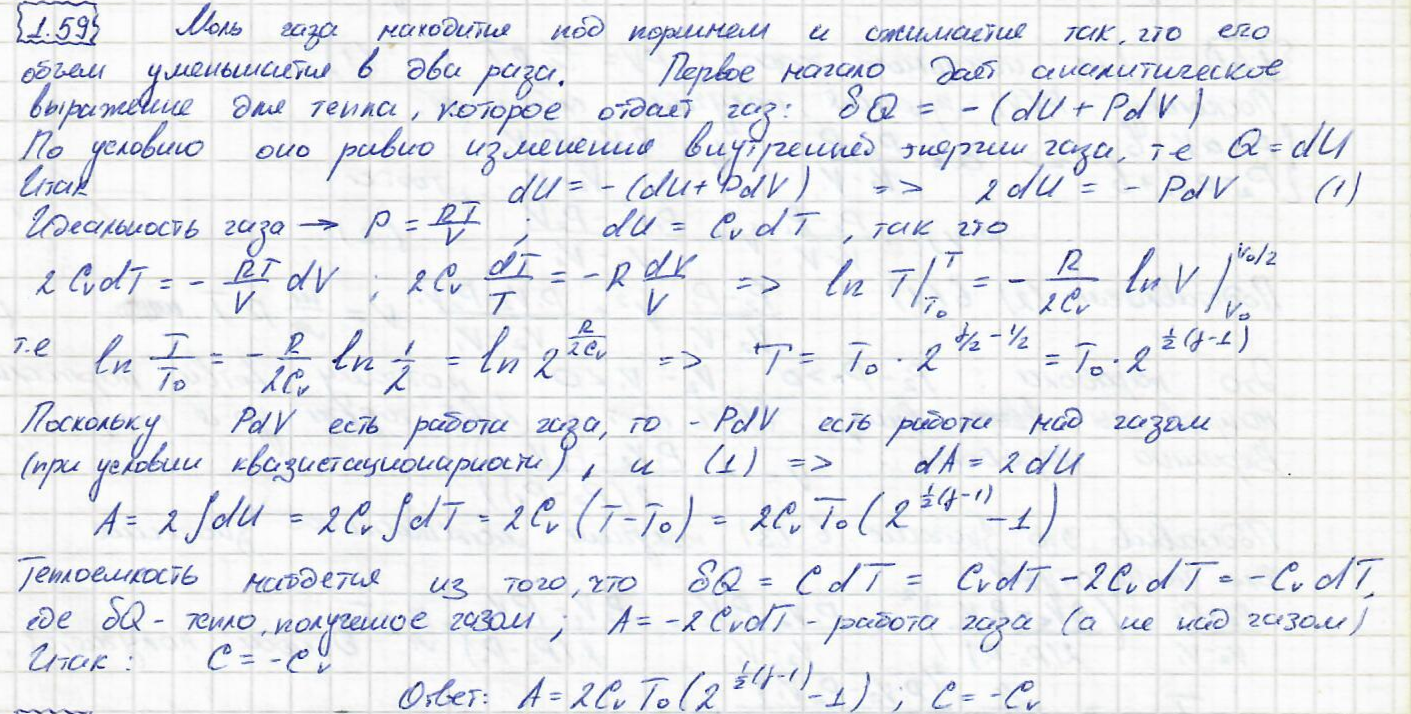 1.59 Моль газа находится под поршнем и сжимается так, что его
объем уменьшается в два раза. Первое начало дает аналитическое
выражение для тепла, которое отдает газ: δQ = -(dU + PdV)
По условию оно равно изменению внутренней энергии газа, т.е Q = dU
Итак dU = -(dU + PdV) => 2dU = -PdV (1)
Идеальность газа → P = RT/V ; dU = CᵥdT, так что
2CᵥdT = - RT/V dV ; 2Cᵥ dT/T = -R dV/V => ln T |_{T₀}^{T} = - R/2Cᵥ ln V |_{V₀}^{V₀/2}
т.е ln T/T₀ = - R/2Cᵥ ln 1/2 = ln 2^{R/2Cᵥ} => T = T₀ · 2^{γ/2 - 1/2} = T₀ · 2^{1/2(γ-1)}
Поскольку PdV есть работа газа, то -PdV есть работа над газом
(при условии квазистационарности), и (1) => dA = 2dU
A = 2∫dU = 2Cᵥ∫dT = 2Cᵥ(T-T₀) = 2CᵥT₀(2^{1/2(γ-1)} - 1)
Теплоемкость найдется из того, что δQ = CdT = CᵥdT - 2CᵥdT = -CᵥdT,
где δQ - тепло, полученное газом; A = -2CᵥdT - работа газа (а не над газом)
Итак: C = -Cᵥ
Ответ: A = 2CᵥT₀(2^{1/2(γ-1)} - 1) ; C = -Cᵥ